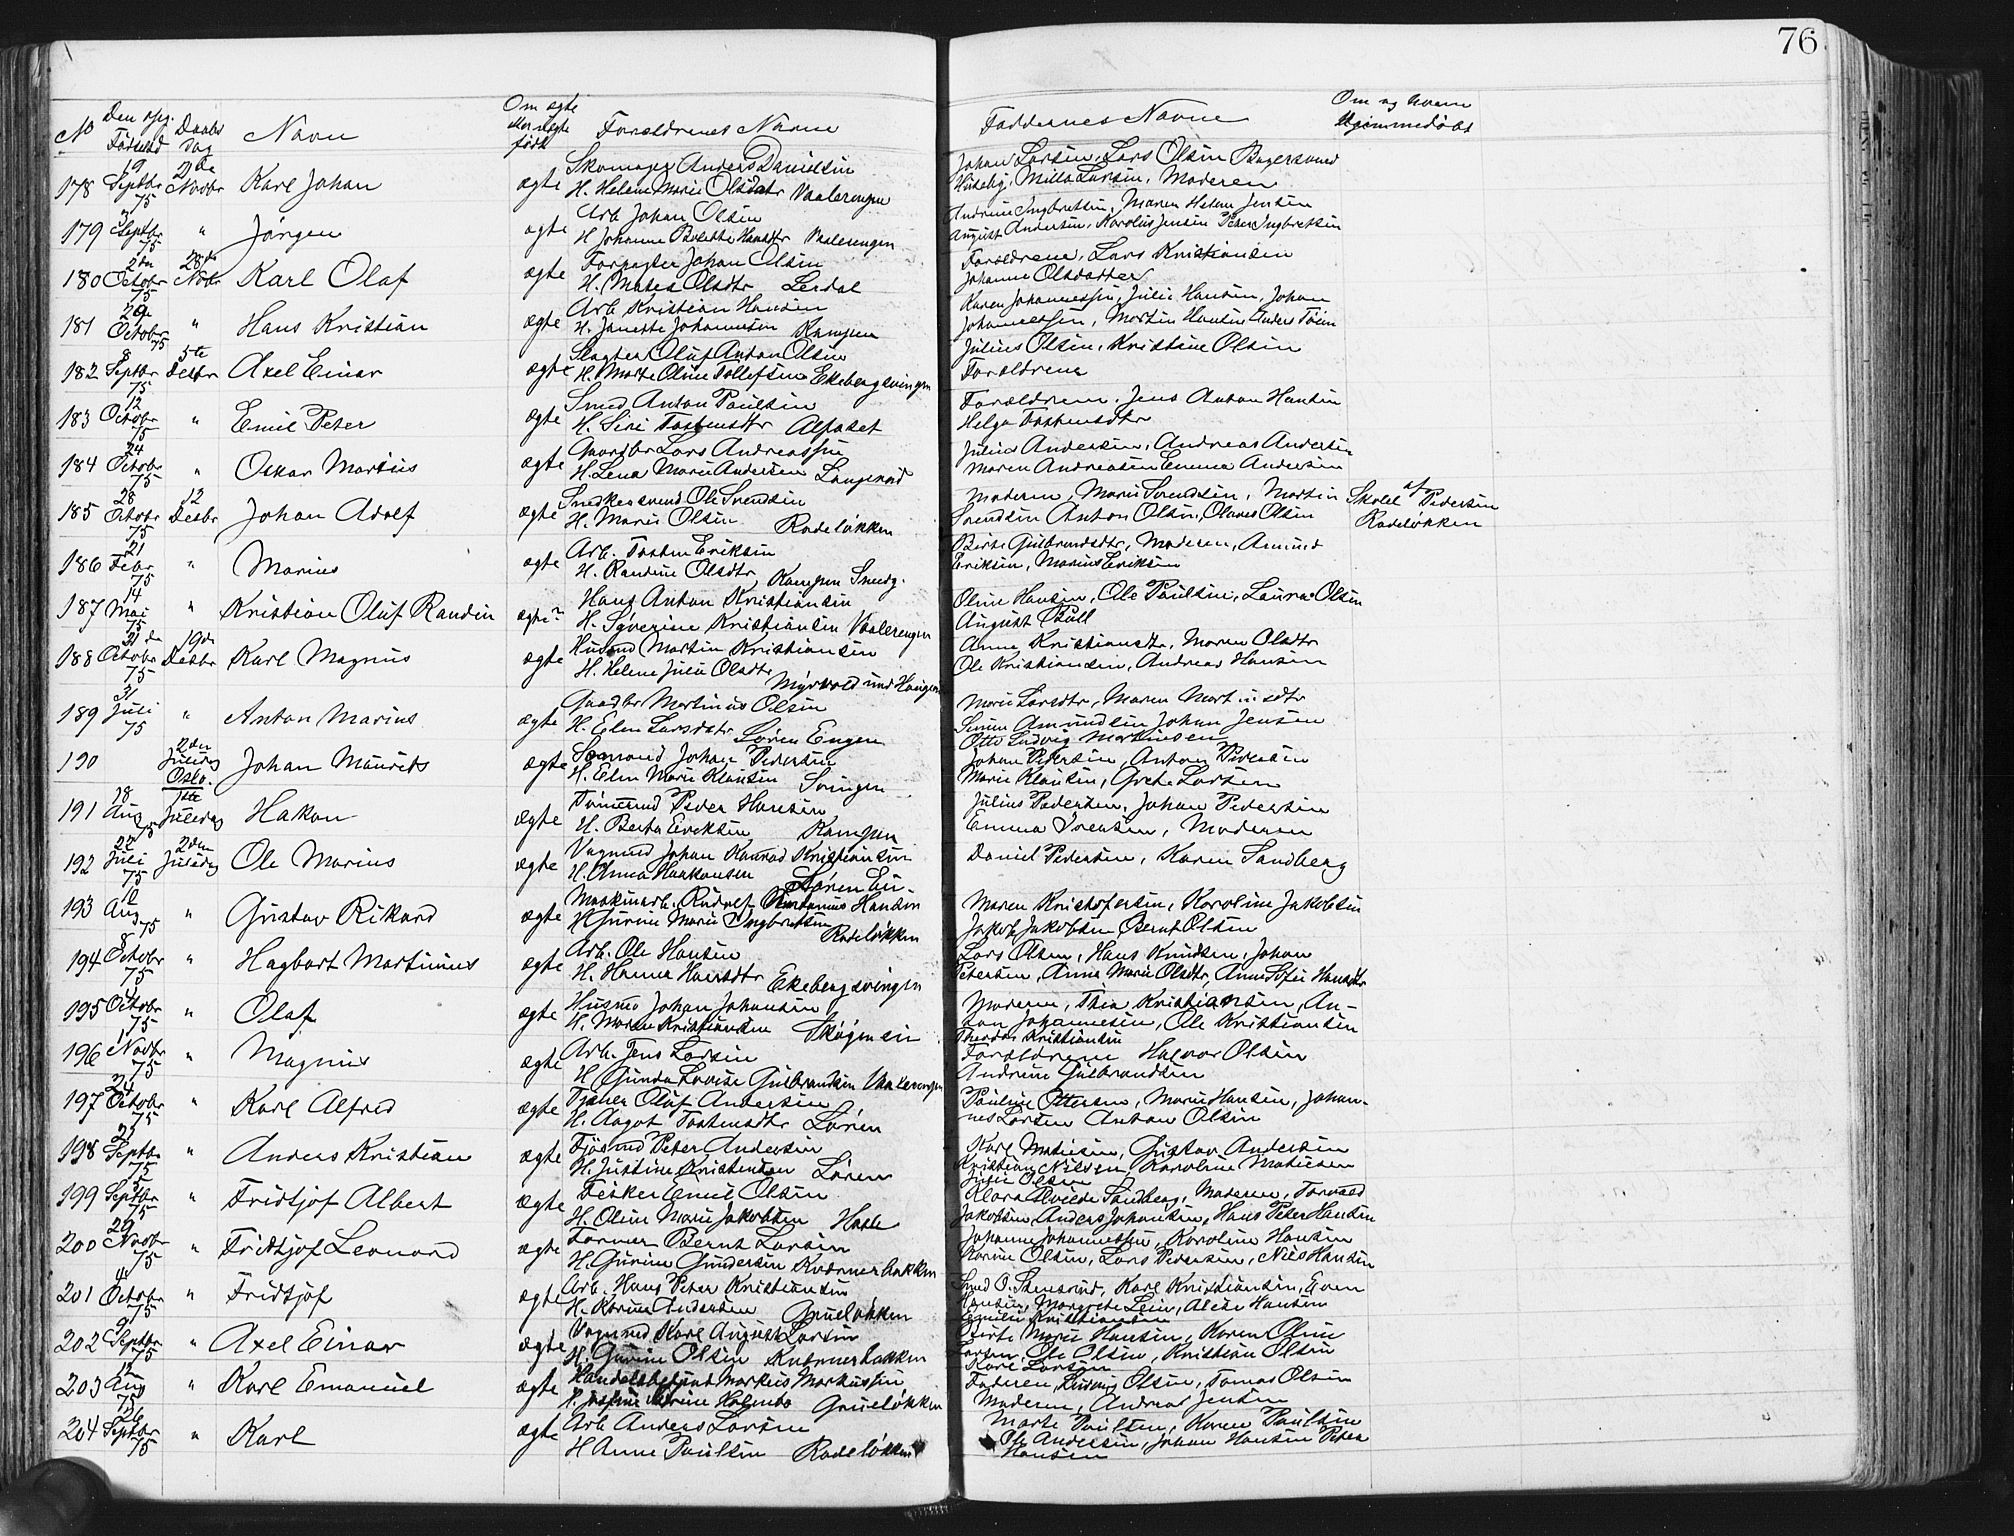 76
No Den opg. Fødested Daabs dag Navn Om ægte eller uægte født Forældrenes Navne Faddernes Navne Om og hvem hjemmedøbt
178 19 Septbr 75 21de Novbr Karl Johan ægte Skomager Anders Danielsen Johan Larsen, Lars Olsen Bagersvend
H. Helene Marie Olsdatr Vaalerengen Milla Larsen, Moderen
179 3 Septbr 75 " Jørgen ægte Arb Johan Olsen Andrine Ingbretsen, Maren Helene Jensen
H Johanne Bolette Hansdtr Vaalerengen August Andersen, Karolus Jensen Peter Ingbretsen
180 2den Octobr 75 28de Novbr Karl Olaf ægte Forpagter Johan Olsen Forældrene, Lars Kristiansen
H. Mathea Olsdtr Lerdal Johanne Olsdatter
181 29 Octobr 75 " Hans Kristian ægte Arb Kristian Hansen Karen Johannessen, Julie Hansen, Johan
H. Janette Johannesen Kampen Johannessen, Martin Hansen Anders Toien
182 8 Septbr 75 5te Desbr Axel Einar ægte Slagter Oluf Anton Olsen Julius Olsen, Kristine Olsen
H. Marte Oline Tollefsen Ekebergsvingen Forældrene
183 12 Octobr 75 " Emil Peter ægte Smed Anton Paulsen Forældrene, Jens Anton Hansen
H. Siri Tostensdtr Alfaset Helga Tostensdtr
184 24 Octobr 75 " Oskar Martius ægte Gaardbr Lars Andreassen Julius Andersen, Andreas Andersen
H. Lena Marie Andersen Langerud Maren Andreasen Emma Andersen
185 28 Octobr 75 12 Desbr Johan Adolf ægte Snedkersvend Ole Svendsen Moderen, Marie Svendsen, Martin Skolel af Pedersen
H. Marie Olsen Rodeløkken Svendsen Anton Olsen, Olaves Olsen Rodeløkken
186 21 Febr 75 " Marius ægte Arb. Tosten Eriksen Berte Gulbrandsdtr, Moderen, Amund
H. Randine Olsdtr Kampen Smedg. Eriksen, Marius Eriksen
187 14 Mai 75 " Kristian Oluf Randin ægte? Hans Anton Kristiansen Oline Hansen, Ole Paulsen, Laura Olsen
H. Severine Kristiansen Vaalerengen August Bull
188 31 Octobr 75 19de Desbr Karl Magnus ægte Husmd Martin Kristiansen Anna Kristiansdtr, Maren Olsdtr
H. Helene Julie Olsdtr Myrvold und Haugen Ole Kristiansen, Andreas Hansen
189 31 Juli 75 " Anton Marius ægte Gaardbr Martinus Olsen Marie Larsdtr, Maren Martinsdtr
H. Elen Larsdatr Søren Engen Simen Amundsen Johan Jensen
Otto Ludvig Martinsen
190 2den Juledag Oslo. Johan Maurits ægte Sømand Johan Pedersen Johan Pedersen, Anton Pedersen
H. Elen Marie Klausen Svingen Marie Klausen, Grete Larsen
191 18 Aug 75 1ste Juledag Hakon ægte Tømmermd Peder Hansen Julius Pedersen, Johan Pedersen
H. Berta Eriksen Kampen Emma Svensen, Moderen
192 22 Juli 75 2den Juledag Ole Marius ægte Vognmd Johan Konrad Kristiansen Daniel Pedersen, Karen Sandberg
H. Anna Haakonsen Søren En-
193 12 Aug 75 " Gustav Rikard ægte Maskinarb. Rudolf Hansen Maren Kristofersen, Karoline Jakobsen
H Gurine Marie Ingbretsen Rodeløkken Jakob Jakobsen, Bernt Olsen
194 8 Octobr 75 " Hagbart Martinius ægte Arb. Ole Hansen Lars Olsen, Hans Knudsen, Johan
H. Hanna Hansdtr Ekebergsvingen Petersen, Anne Marie Olsdtr, Anne Sofie Hansdtr
195 Octobr 75 " Olaf ægte Husmd Johan Johansen Moderen, Thea Kristiansen, An-
H. Maren Kristiansen Skøyenseie ton Johannesen, Ole Kristiansen
Theodor Kristiansen
196 1 Novbr 75 " Magnus ægte Arb. Jens Larsen Forældrene Halvor Olsen
H Gunda Lovise Gulbrandsen Vaalerengen Andrine Gulbrandsen
197 24 Octobr 75 " Karl Alfred ægte Tjener Oluf Andersen Pauline Ottersen, Marie Hansen, Johan-
H. Aagot Tostensdtr Løren nes Larsen Anton Olsen
198 Septbr 75 " Anders Kristian ægte Fjøsmd Peter Andersen Karl Matiesen, Gustav Andersen
H. Justine Kristensen Løren Kristian Nilsen Karoline Matiesen
Julie Olsen
199 Septbr 75 " Fridtjof Albert ægte Fisker Emil Olsen Klara Alvilde Sandberg, Moderen, Torvald
H. Oline Marie Jakobsen Hasle Jakobsen Anders Johansen, Hans Peter Hansen
200 29 Novbr 75 " Fridtjof Leonard ægte Former Bernt Larsen Johanne Johannessen, Karoline Hansen
H. Gurine Gundersen Kværnerbakken Karine Olsen, Lars Pedersen, Nils Hansen
201 4 Octobr 75 " Fridtjof ægte Arb. Hans Peter Kristiansen Smed O. Stensrud, Karl Kristiansen, Even
H. Karine Andersen Grueløkken Hansen, Margrete Lein, Alette Hansen
Emilie Kristiansen
202 9 Septbr 75 " Axel Einar ægte Vognmd Karl August Larsen Berte Marie Hansen, Karen Oline
H. Gurine Olsen Kværnerbakken Larsen Ole Olsen, Kristian Olsen
Karl Larsen
203 12 Aug 75 " Karl Emanuel ægte Handelsbetjent Markus Markussen Faderen, Ludvig Olsen, Tomas Olsen
H. Josefine Holmbo Grueløkken Moderen, Andreas Jensen
204 26 Septbr 75 " Karl ægte Arb Anders Larsen Marte Paulsen, Karen Paulsen
H Anne Paulsen Rodeløkken Ole Andersen, Johan Hansen Peter
Hansen